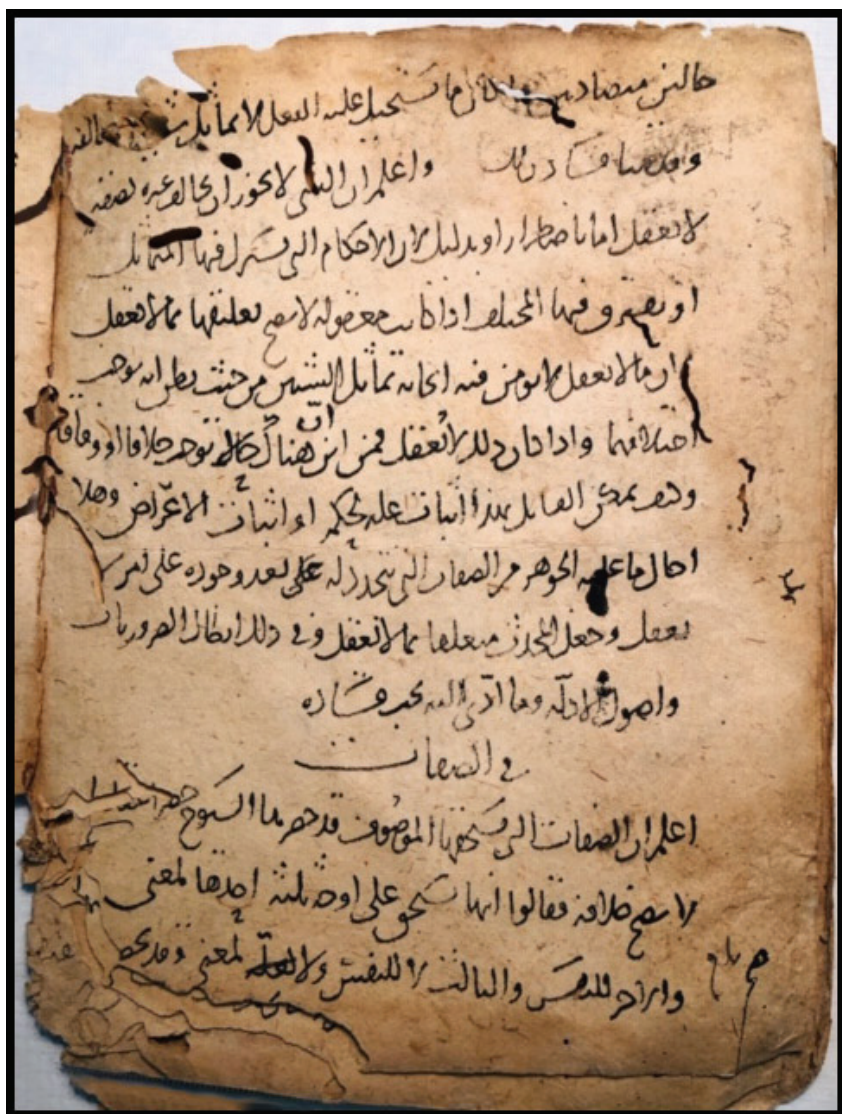 حالتين متضادتين وكان ما تستحيل عليه النقل لا يماثل
وقد بينا فساد ذلك واعلم ان الشي لا يجوز ان يخالف غيره بصفه
لا تعقل اما باضطرار او بدليل لان الاحكام التي يشترك فيها المتماثل
او يفترق فيها المختلف اذا كانت معقوله لا يصح تعليقها بما لا يعقل
لان ما لا يعقل لا يومن فيه ايجابه تماثل الشيئين من حيث يظن انه يوجب
اختلافهما واذا كان ذلك لا يعقل فمن اين ان هناك حالا توجب خلافا او وفاقا
وكيف يمكن القايل بهذا اثبات عله لحكم او اثبات الاعراض وهلا
احال ما عليه الجوهر من الصفات التي تتجدد له بعد وجوده على امر لا
يعقل وجعل المحدث متعلقا بما لا يعقل وفي ذلك ابطال الضروريات
واصول الادله وما ادى اليه يجب فساده
في الصفات
اعلم ان الصفات التي يستحقها الموصوف قد حصرها الشيوخ
لا يصح خلافه فقالوا انها تستحق على اوجه ثلثه احدها لمعنى
والاخر للنفس والثالث لا للنفس ولا لمعنى